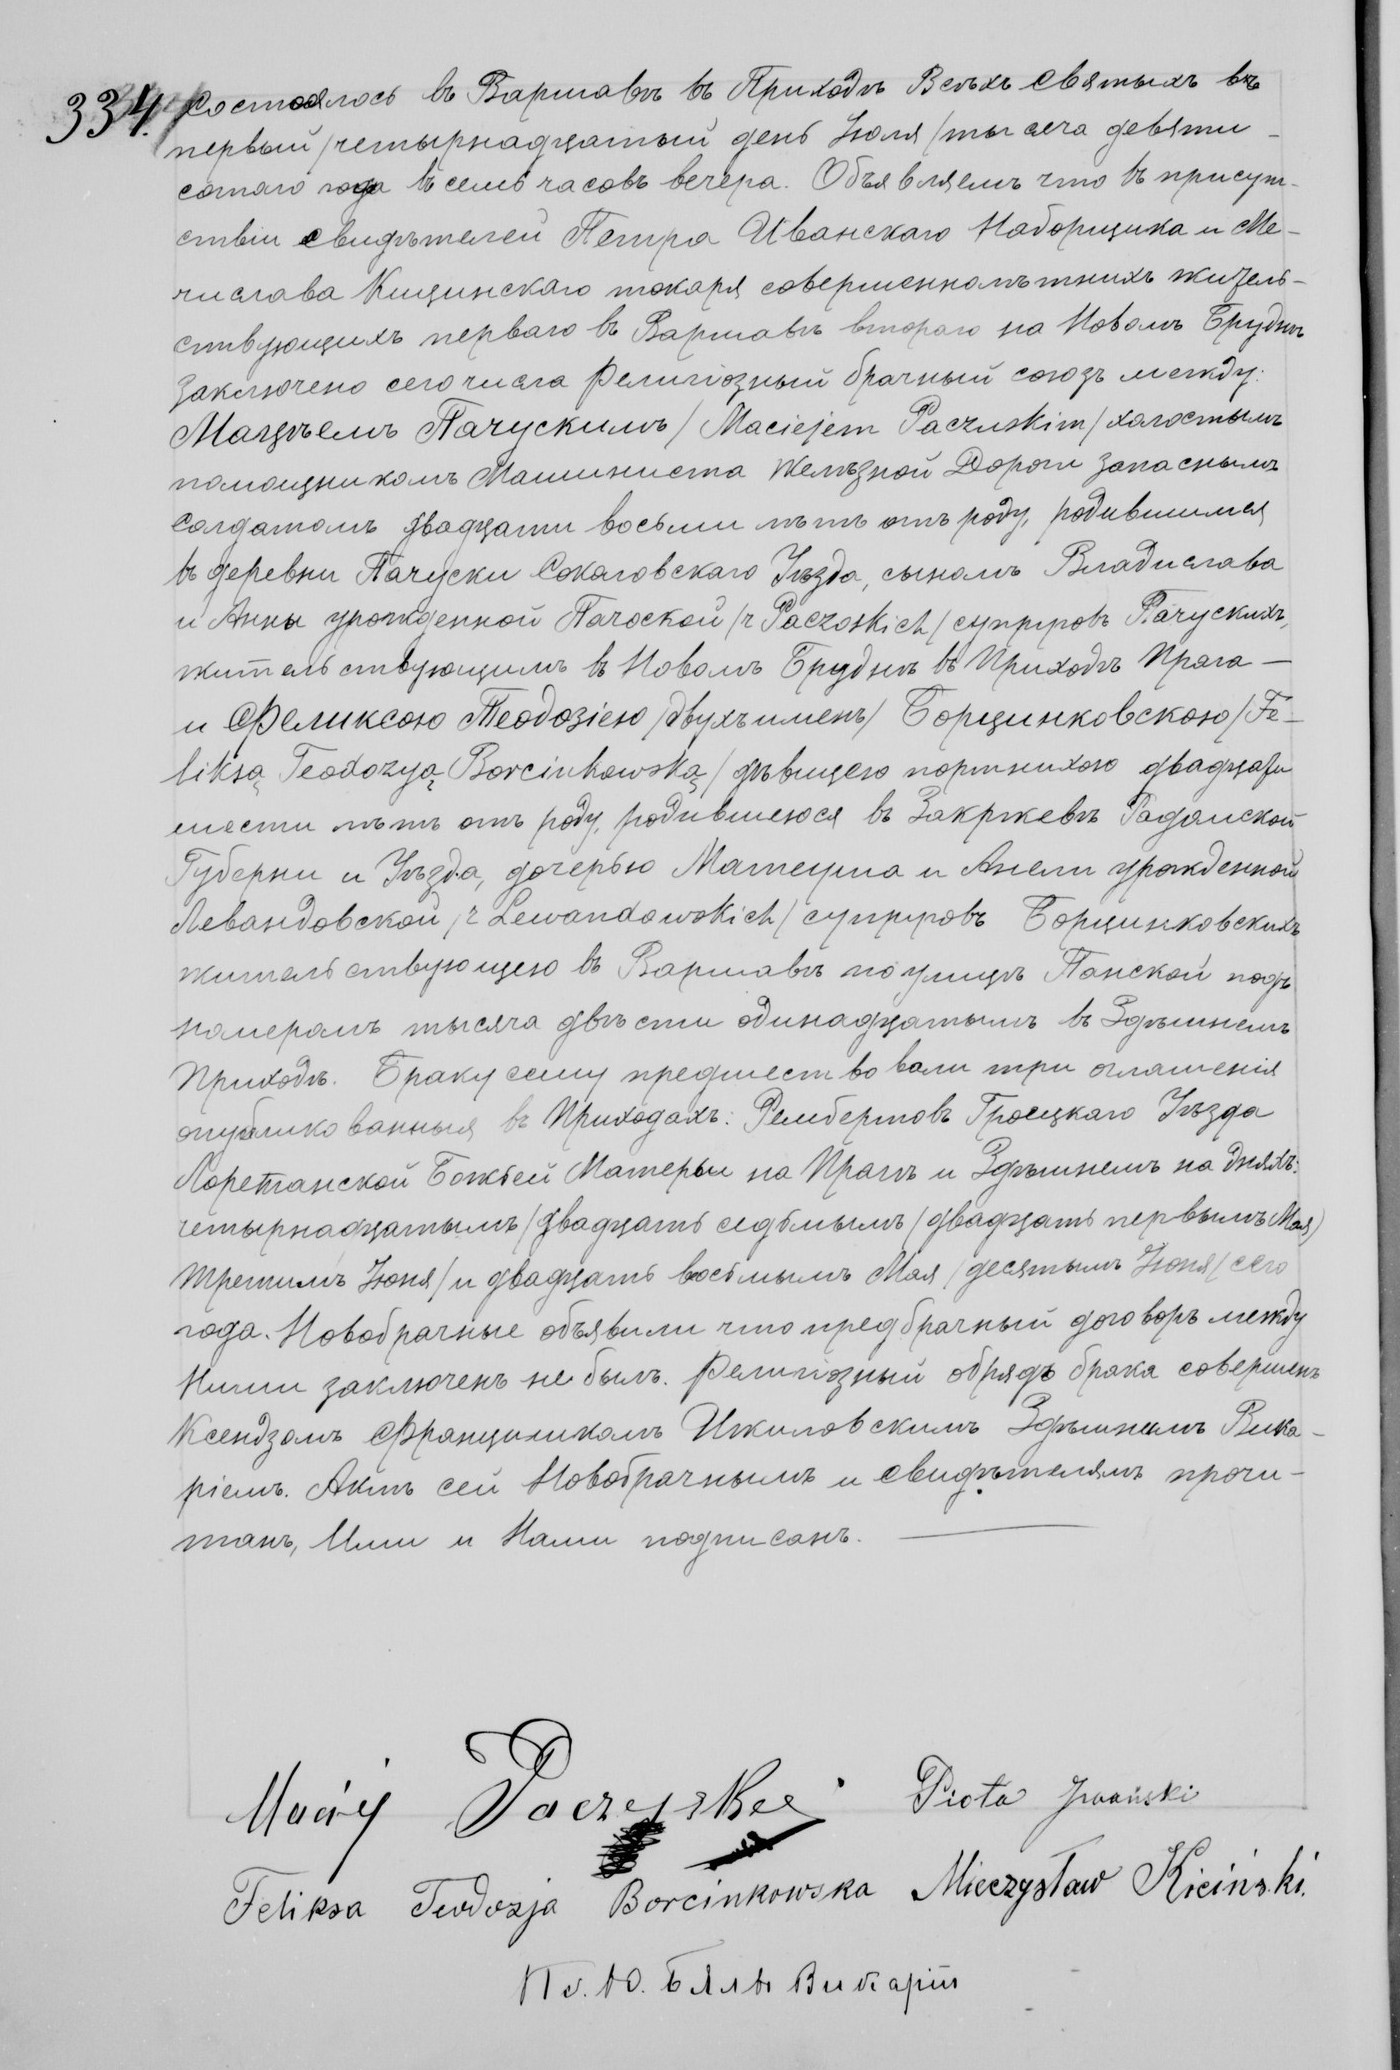 334. Состоялось въ Варшавѣ въ Приходѣ Всѣхъ Святыхъ въ
первый /четырнадцатый день Іюля/ тысяча девяти-
сотаго года въ семь часовъ вечера. Объявляемъ что въ присут-
ствіи свидѣтелей Петра Иванскаго Наборщика и Ме-
числава Кицинскаго токаря совершеннолѣтнихъ житель-
ствующихъ перваго въ Варшавѣ втораго на Новомъ Бруднѣ
заключено сего числа Религіозный брачный союзъ между:
Мацѣемъ Пачускимъ /Maciejem Paczuskim/ холостымъ
помощникомъ Машиниста Желѣзной Дороги запаснымъ
солдатомъ двадцати восьми лѣтъ отъ роду, родившимся
въ деревни Пачуски Соколовскаго Уѣзда, сыномъ Владислава
и Анны урожденной Пачоской /z Paczoskich/ супруговъ Пачускихъ,
жительствующимъ въ Новомъ Бруднѣ въ Приходѣ Прага —
и Феликсою Теодозіею /двухъ именъ/ Борцинковскою /Fe-
liksą Teodozyą Borcinkowską/ дѣвицею портнихою двадцати
шести лѣтъ отъ роду, родившеюся въ Закржевѣ Радомской
Губерни и Уѣзда, дочерью Матеуша и Анели урожденной
Левандовской /z Lewandowskich/ супруговъ Борцинковскихъ
жительствующею въ Варшавѣ по улицѣ Панской подъ
номеромъ тысяча двѣсти одинадцатымъ въ Здѣшнемъ
Приходѣ. Браку сему предшествовали три оглашенія
опубликованныя въ Приходахъ: Рембертовъ Гроецкаго Уѣзда
Лоретанской Божьей Матеры на Прагѣ и Здѣшнемъ на дняхъ:
четырнадцатымъ /двадцать седьмымъ/ двадцать первымъ Мая/
третимъ Іюня/ и двадцать восьмымъ Мая /десятымъ Іюня/ сего
года. Новобрачные объявили что предбрачный договоръ между
Ними заключенъ не былъ. Религіозный обрядъ брака совершенъ
Ксендзомъ Францишкомъ Здѣшнимъ Вика-
ріемъ. Актъ сей Новобрачнымъ и свидѣтелямъ прочи-
танъ, Ими и Нами подписанъ. —
Maciej Paczuski Piotr Iwański
Feliksa Teodozja Borcinkowska Mieczysław Kiciński.
Кс. Ю. Бялы Викарій